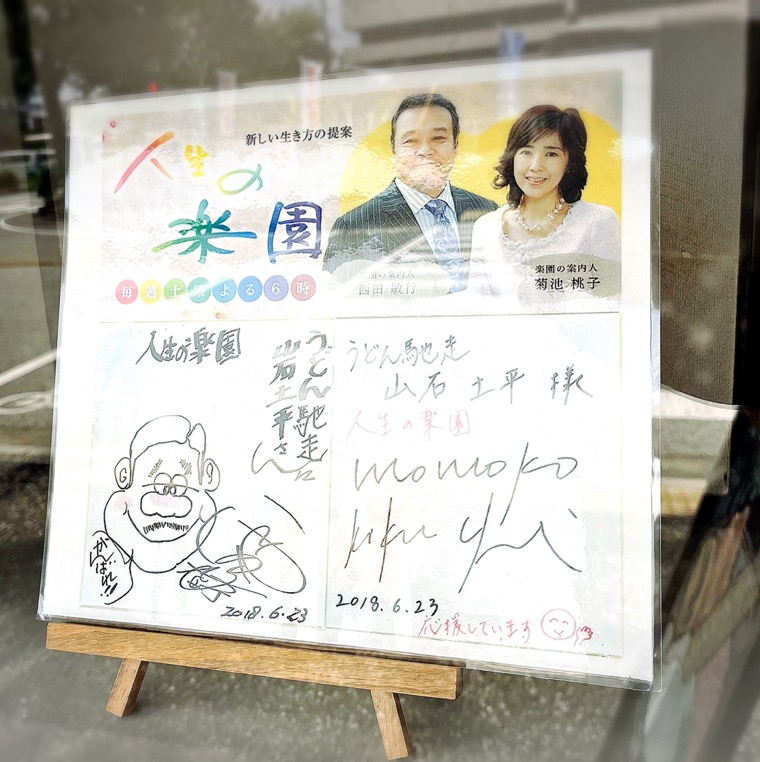 新しい生き方の提案
人生の
楽園
毎週土曜よる6時
楽園の案内人
西田 敏行
楽園の案内人
菊池 桃子
人生の楽園
うどん馳走
山石土平さん
がんばれ!!
2018.6.23
うどん馳走
山石 土平 様
人生の楽園
momoko
kikuchi
2018.6.23
応援しています